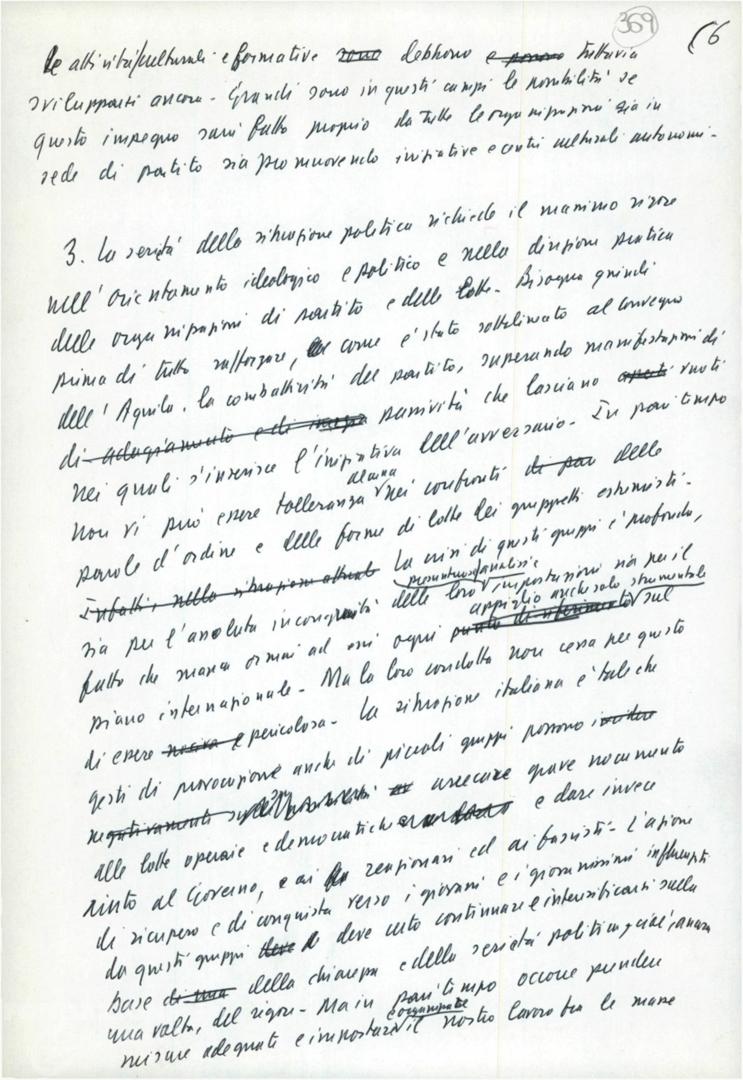 369
16
Le attività culturali e formative sono debbono e possono tuttavia
svilupparsi ancora - Grandi sono in questi campi le possibilità se
questo impegno sarà fatto proprio da tutte le organizzazioni sia in
sede di partito sia promuovendo iniziative e centri culturali autonomi -
3. La serietà della situazione politica richiede il massimo rigore
nell'orientamento ideologico e politico e nella direzione pratica
delle organizzazioni di partito e delle lotte - Bisogna quindi
prima di tutto rafforzare, come è stato sottolineato al convegno
dell'Aquila, la combattività del partito, superando manifestazioni di
di adagiamento e di inerzia passività che lasciano aperti vuoti
nei quali s'inserisce l'iniziativa dell'avversario - In pari tempo
non vi può essere tolleranza alcuna nei confronti di par delle
parole d'ordine e delle forme di lotta dei gruppetti estremisti -
Infatti, nella situazione attuale La crisi di questi gruppi è profonda,
sia per l'assoluta incongruità delle loro presuntuose analisi e impostazioni sia per il
fatto che manca ormai ad essi ogni punto di riferimento appiglio anche solo strumentale sul
piano internazionale - Ma la loro condotta non cessa per questo
di essere nociva e pericolosa - La situazione italiana è tale che
gesti di provocazione anche di piccoli gruppi possono incidere
negativamente arrecare grave nocumento
alle lotte operaie e democratiche e dare invece
aiuto al Governo, e ai reazionari ed ai fascisti - L'azione
di ricupero e di conquista verso i giovani e i giovanissimi influenzati
da questi gruppi deve deve certo continuare e intensificarsi sulla
base di una della chiarezza e della serietà politica, cioè, ancora
una volta, del rigore - Ma in pari tempo occorre prendere
misure adeguate e impostare e organizzare il nostro lavoro tra le masse